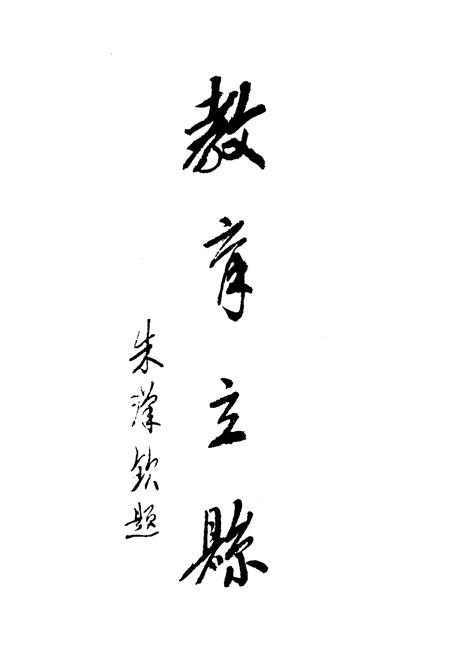 教育立縣
朱漢欽題